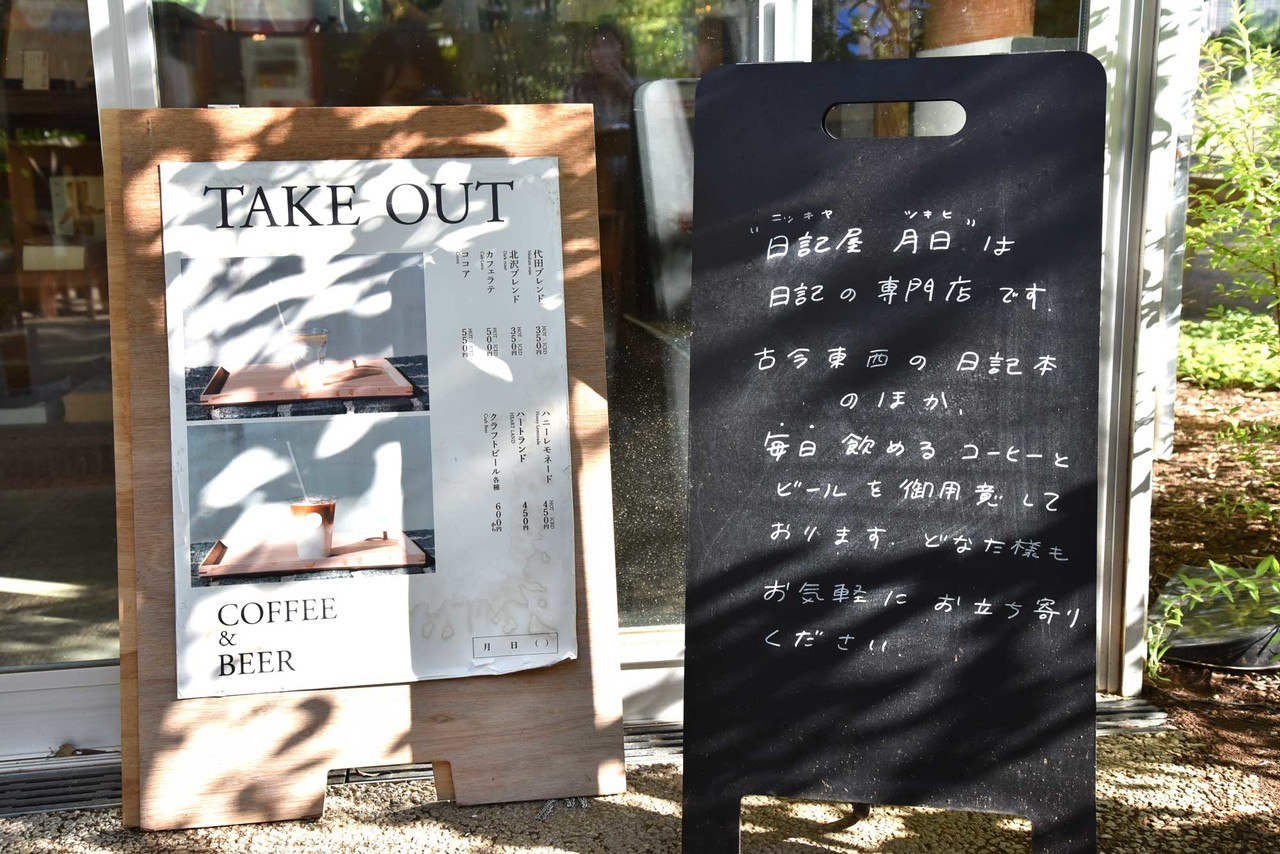 TAKE OUT
代田ブレンド
Medium roast
HOT / ICED
350円
北沢ブレンド
Dark roast
HOT / ICED
350円
カフェラテ
Cafe Latte
HOT / ICED
500円
ココア
Cocoa
HOT / ICED
550円
ハニーレモネード
Honey Lemonade
HOT / ICED
450円
ハートランド
HEART LAND
450円
クラフトビール各種
Craft Beer
600円から
COFFEE
&
BEER
月 日 ( )
ニッキヤ ツキヒ
“日記屋 月日”は
日記の専門店です。
古今東西の日記本
のほか、
毎日飲めるコーヒーと
ビールを御用意して
おります。どなた様も
お気軽にお立ち寄り
ください。